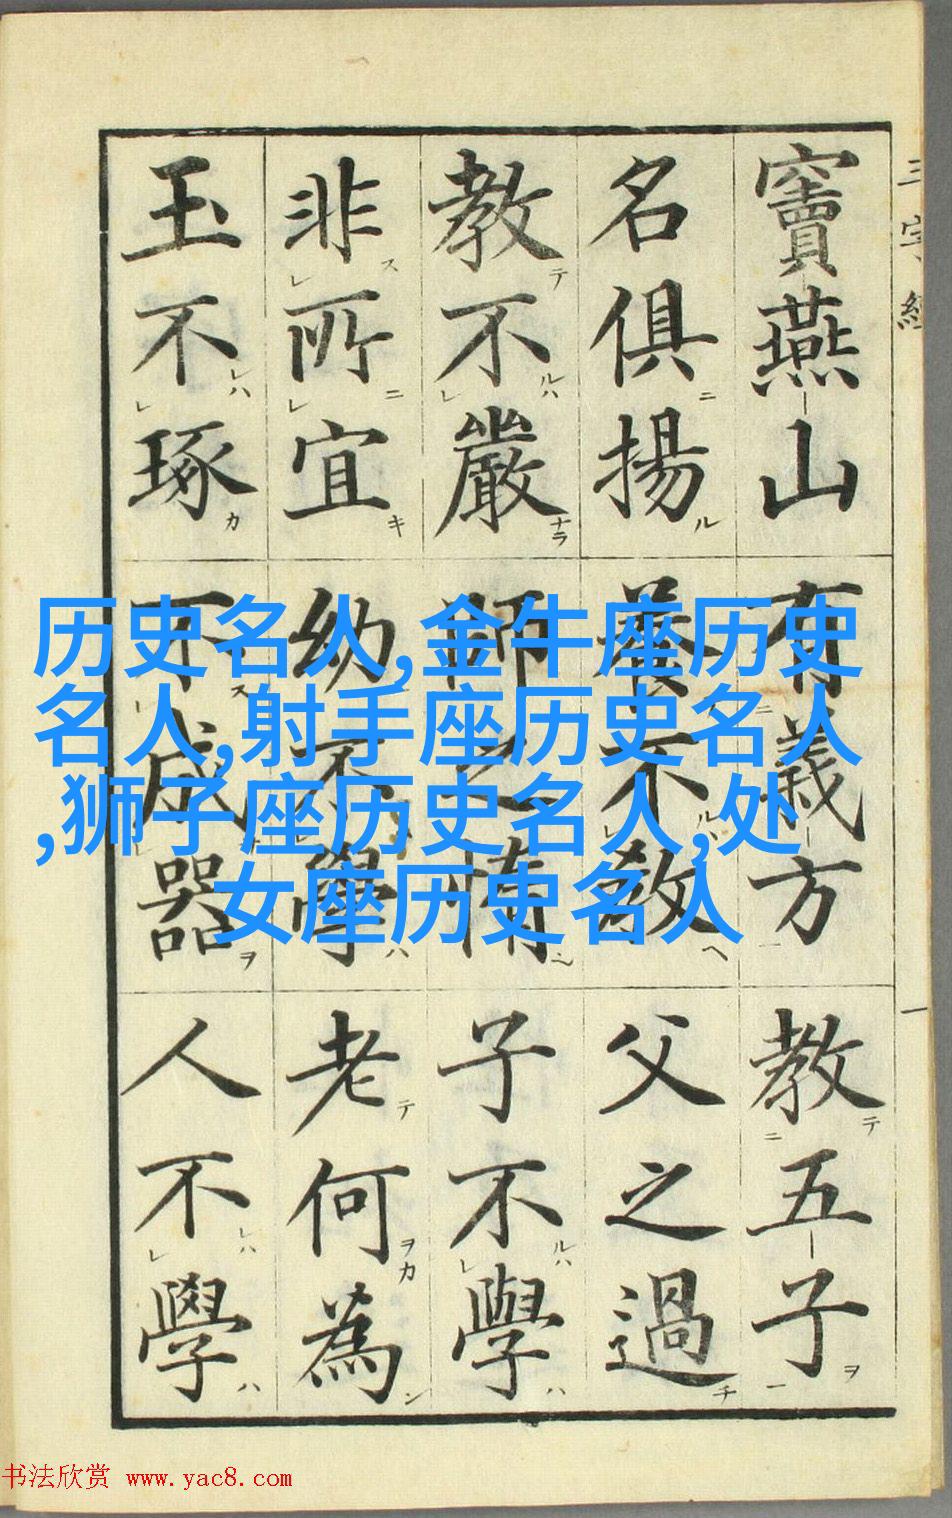 三字經
竇燕山有義方教五子
名俱揚養不教父之過
教不嚴師之惰子不學
非所宜幼不學老何為
玉不琢不成器人不學
一
历史名人,金牛座历史
名人,射手座历史名人
,狮子座历史名人,处
女座历史名人
书法欣赏 www.yac8.com